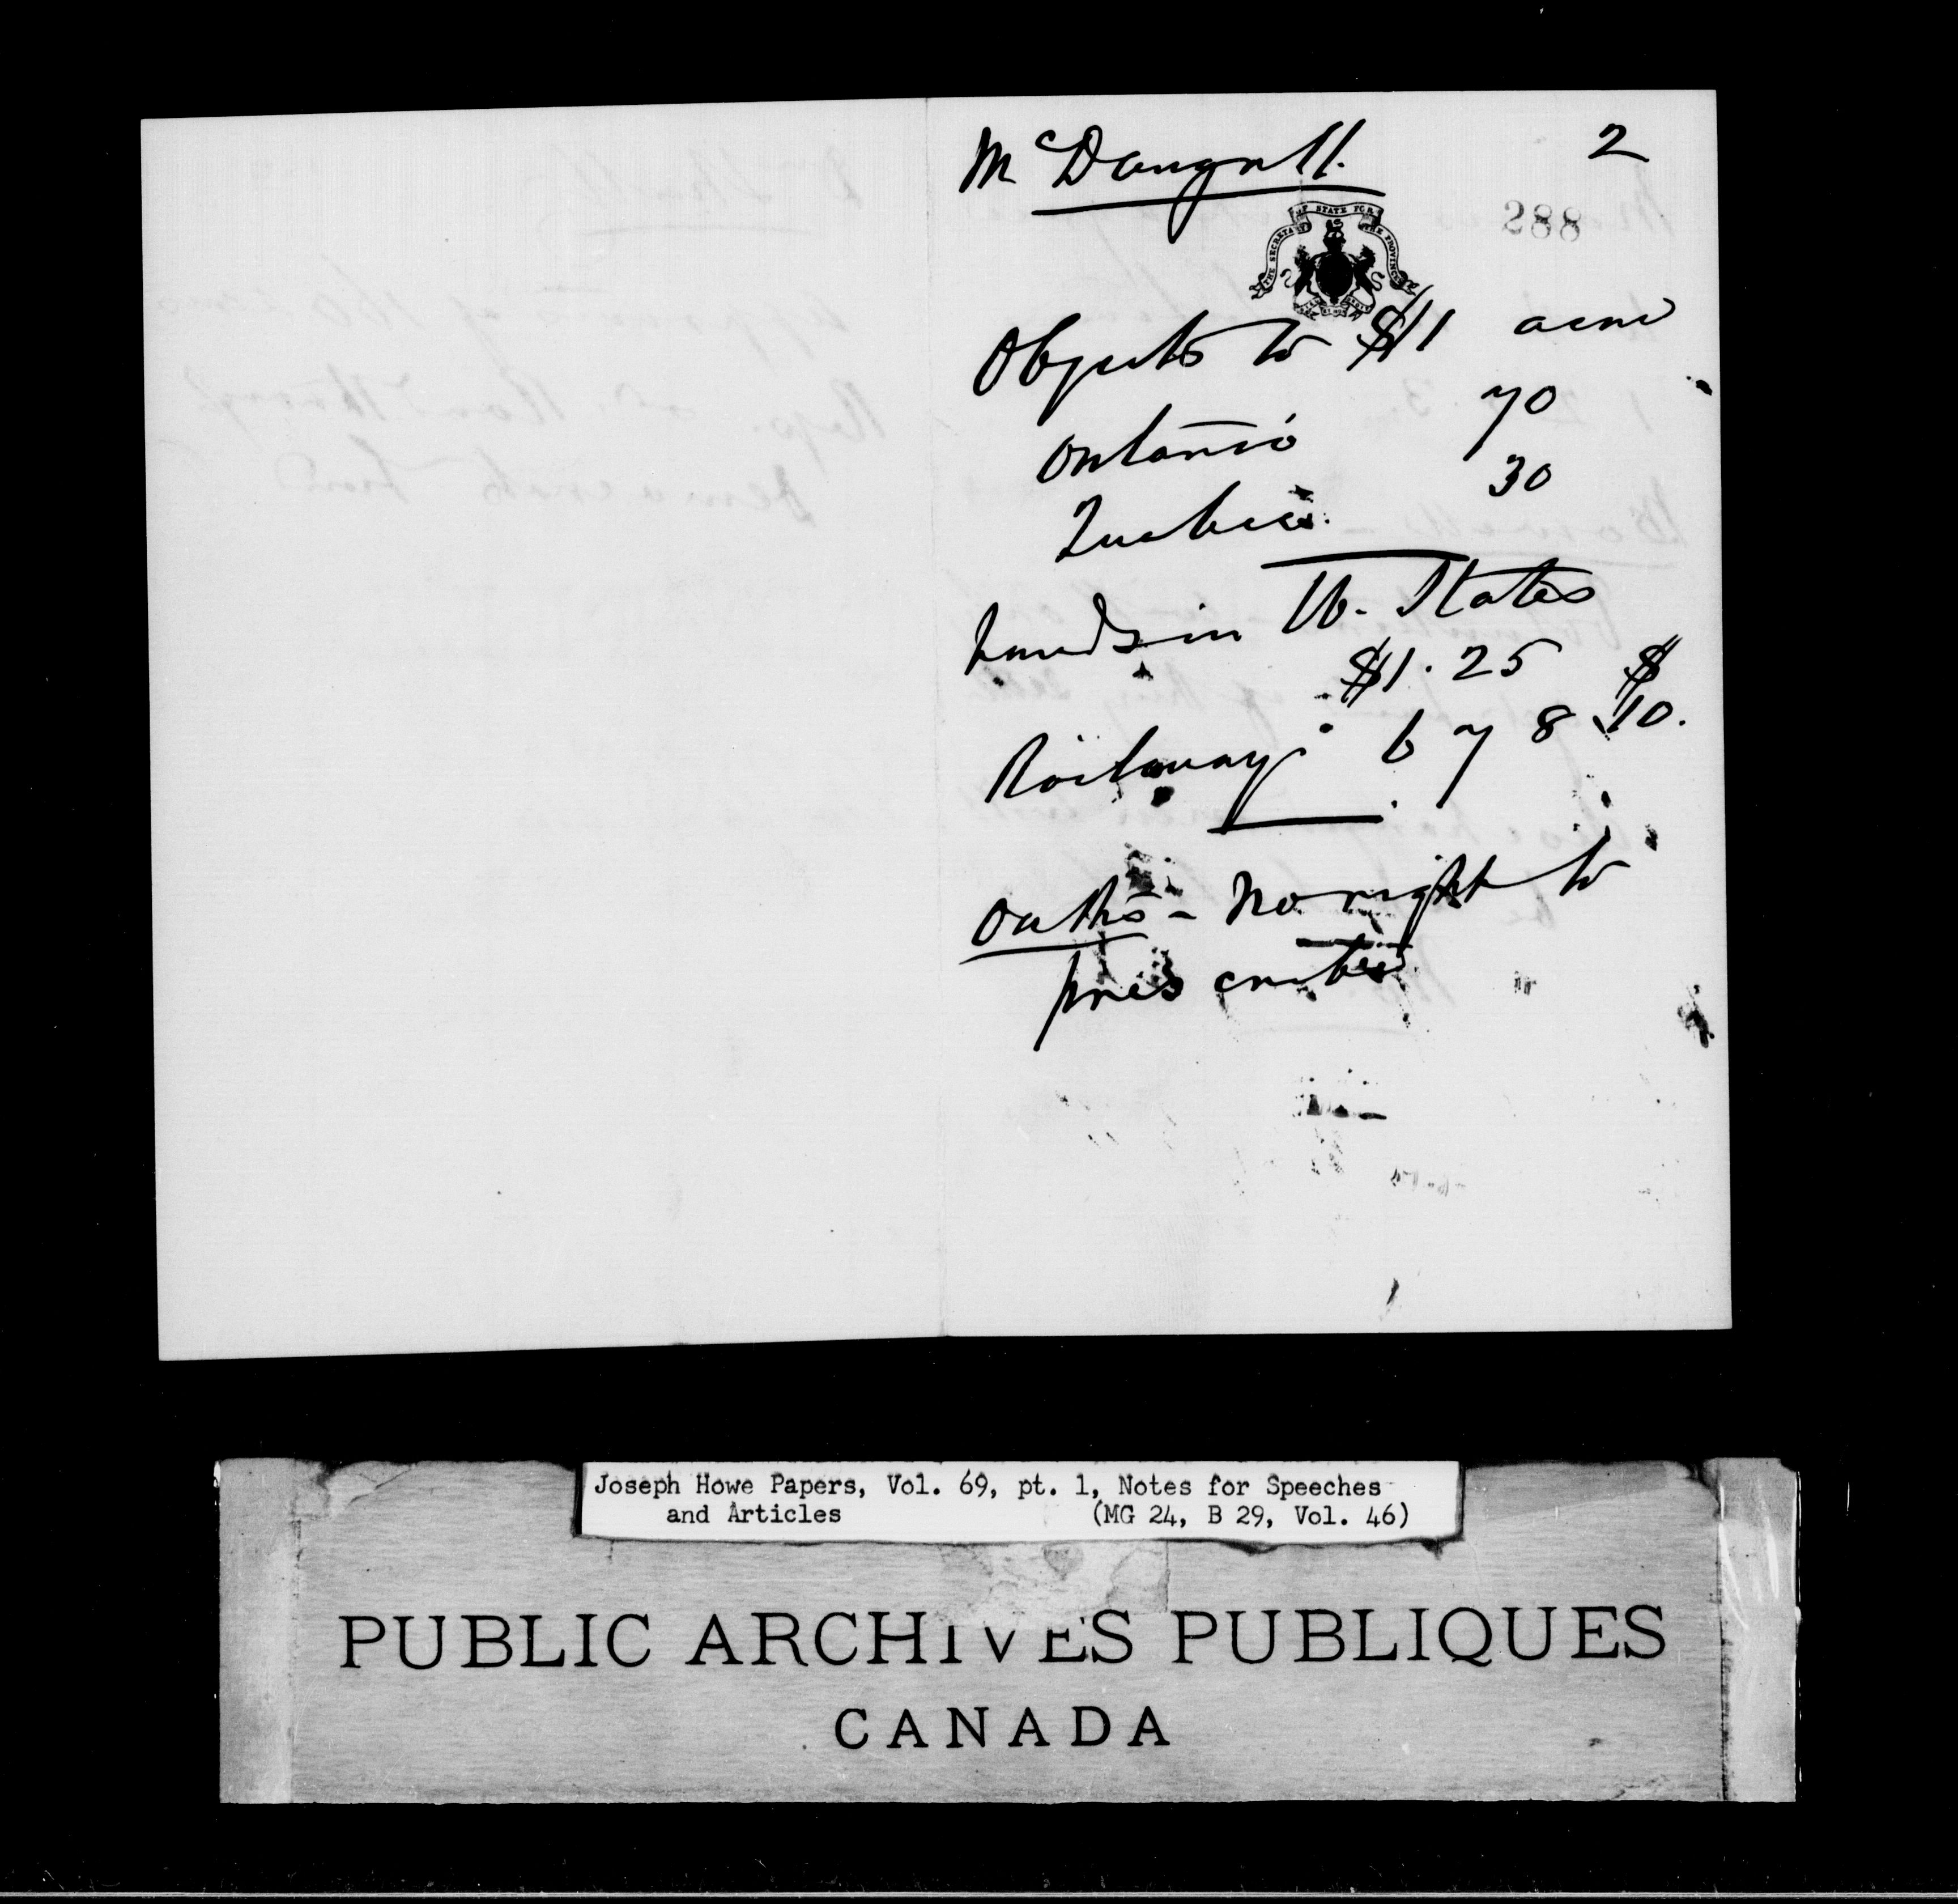 McDougall. 2
288
THE SECRETARY OF STATE FOR THE PROVINCES
Objects to $1 acre
Ontario 70
Quebec. 30
Lands in U. States
$1.25 $
Railways 6 7 8 10.
Oaths - No right to
prescribe
Joseph Howe Papers, Vol. 69, pt. 1, Notes for Speeches
and Articles (MG 24, B 29, Vol. 46)
PUBLIC ARCHIVES PUBLIQUES
CANADA